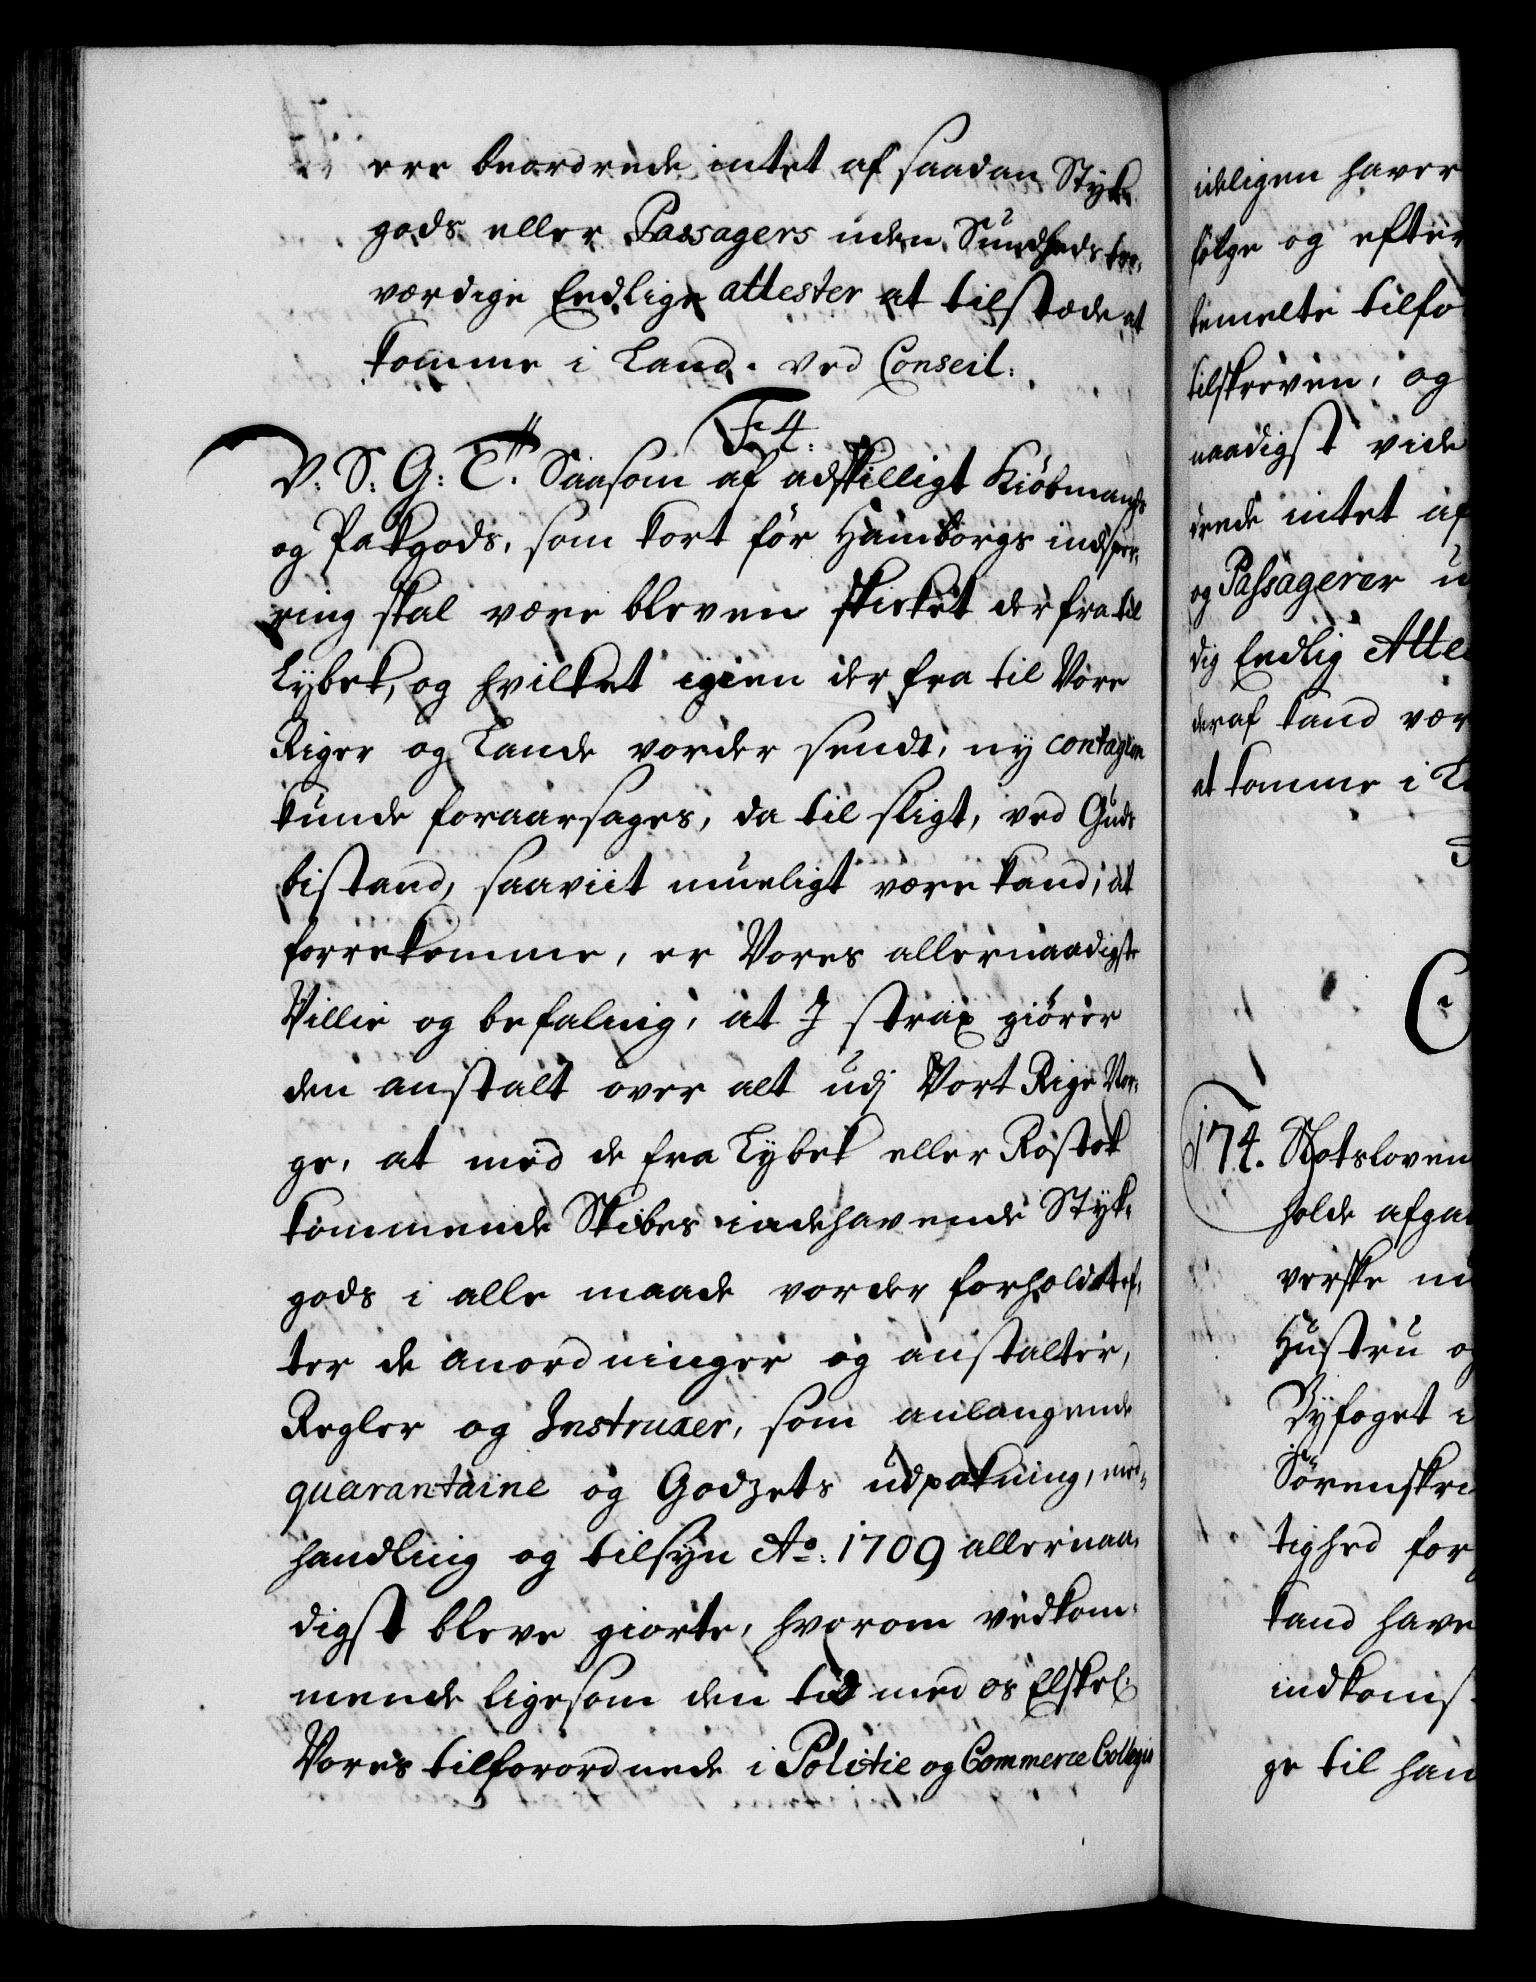 ere beordrede intet af saadan Styk-
gods eller Passagers uden Sundheds tro-
værdige Eedlige attester at tilstæde at
komme i Land. ved Conseil.
F4.
V: S: G: T. Saasom af adskilligt Kiøbmands
og Pakgods, som kort før Hamborgs indsper-
ring skal være bleven skicket der fra til
Lybek, og hvilket igien der fra til Vore
Riger og Lande vorder sendt, ny contagion
kunde foraarsages, da til sligt, ved Guds
bistand, saaviit mueligt være kand, at
forrekomme, er Vores allernaadigste
Villie og befaling, at I strax giører
den anstalt over alt udj Vort Rige Nor-
ge, at med de fra Lybek eller Rostok
kommende Skibes indehavende Styk-
gods i alle maade vorder forholdt ef-
ter de anordninger og anstalter,
Regler og Instruxer, som anlangende
quarantaine og Godzets udpakning, med-
handling og tilsyn Ao: 1709 allernaa-
digst bleve giorte, hvorom vedkom-
mende ligesom den tid med os Elskel:
Vores tilforordnede i Politie og Commerce Collegio
ideligen haver
følge og efter
temelte tilfo
tilskreven, og
naadigst vide
drede intet af
og Passagerer u
dig Eedlig Atte
deraf kand vær
at komme i La
174. Slotsloven
holde afga
verske
Hustru og
Byfoget i
Sørenskri
tighed for
kand have
indkoms
ge til han